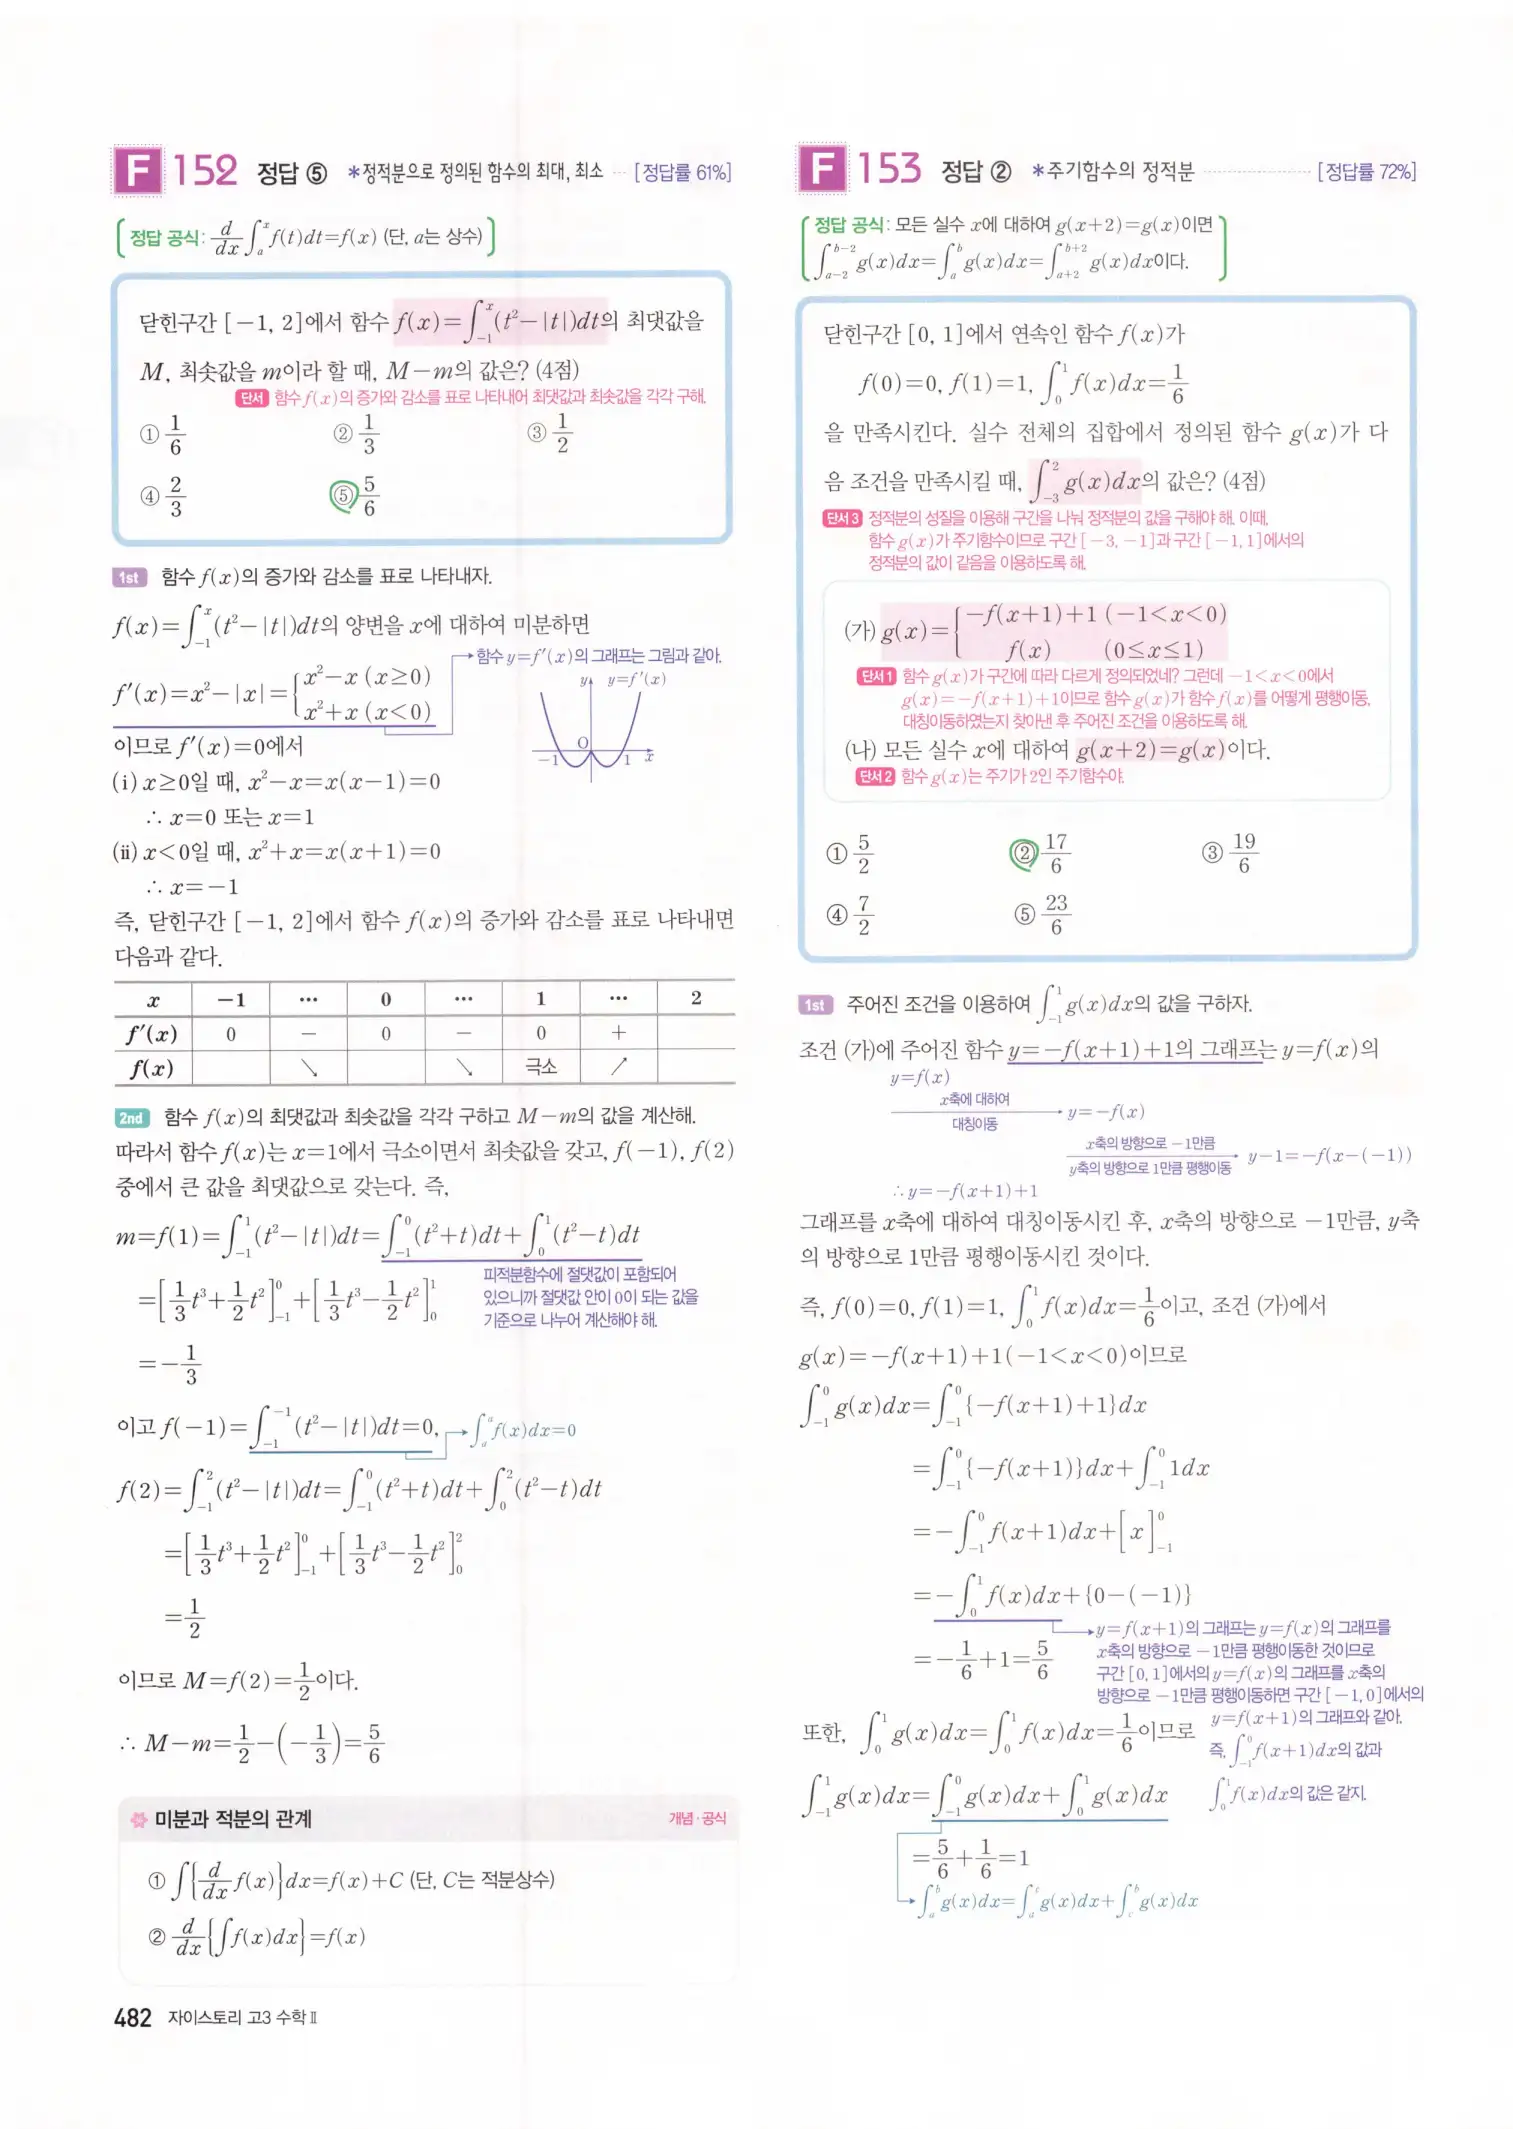 F 152 정답 ⑤ *정적분으로 정의된 함수의 최대, 최소 ··· [정답률 61%]
[정답 공식: d/dx ∫_a^x f(t)dt=f(x) (단, a는 상수)]
닫힌구간 [-1, 2]에서 함수 f(x)=∫_{-1}^x (t²-|t|)dt의 최댓값을
M, 최솟값을 m이라 할 때, M-m의 값은? (4점)
단서 함수 f(x)의 증가와 감소를 표로 나타내어 최댓값과 최솟값을 각각 구해.
① 1/6 ② 1/3 ③ 1/2
④ 2/3 ⑤ 5/6
1st 함수 f(x)의 증가와 감소를 표로 나타내자.
f(x)=∫_{-1}^x (t²-|t|)dt의 양변을 x에 대하여 미분하면
f′(x)=x²-|x|={x²-x (x≥0)
x²+x (x<0)
함수 y=f′(x)의 그래프는 그림과 같아.
y y=f′(x)
-1 O 1 x
이므로 f′(x)=0에서
(ⅰ) x≥0일 때, x²-x=x(x-1)=0
∴ x=0 또는 x=1
(ⅱ) x<0일 때, x²+x=x(x+1)=0
∴ x=-1
즉, 닫힌구간 [-1, 2]에서 함수 f(x)의 증가와 감소를 표로 나타내면
다음과 같다.
x -1 ··· 0 ··· 1 ··· 2
f′(x) 0 - 0 - 0 +
f(x) ↘ ↘ 극소 ↗
2nd 함수 f(x)의 최댓값과 최솟값을 각각 구하고 M-m의 값을 계산해.
따라서 함수 f(x)는 x=1에서 극소이면서 최솟값을 갖고, f(-1), f(2)
중에서 큰 값을 최댓값으로 갖는다. 즉,
m=f(1)=∫_{-1}^1 (t²-|t|)dt=∫_{-1}^0 (t²+t)dt+∫_0^1 (t²-t)dt
=[1/3 t³+1/2 t²]_{-1}^0+[1/3 t³-1/2 t²]_0^1
피적분함수에 절댓값이 포함되어
있으니까 절댓값 안이 0이 되는 값을
기준으로 나누어 계산해야 해.
=-1/3
이고 f(-1)=∫_{-1}^{-1} (t²-|t|)dt=0, → ∫_a^a f(x)dx=0
f(2)=∫_{-1}^2 (t²-|t|)dt=∫_{-1}^0 (t²+t)dt+∫_0^2 (t²-t)dt
=[1/3 t³+1/2 t²]_{-1}^0+[1/3 t³-1/2 t²]_0^2
=1/2
이므로 M=f(2)=1/2이다.
∴ M-m=1/2-(-1/3)=5/6
미분과 적분의 관계 개념·공식
① ∫{d/dx f(x)}dx=f(x)+C (단, C는 적분상수)
② d/dx{∫f(x)dx}=f(x)
482 자이스토리 고3 수학Ⅱ
F 153 정답 ② *주기함수의 정적분 ··· [정답률 72%]
[정답 공식: 모든 실수 x에 대하여 g(x+2)=g(x)이면
∫_{a-2}^{b-2} g(x)dx=∫_a^b g(x)dx=∫_{a+2}^{b+2} g(x)dx이다.]
닫힌구간 [0, 1]에서 연속인 함수 f(x)가
f(0)=0, f(1)=1, ∫_0^1 f(x)dx=1/6
을 만족시킨다. 실수 전체의 집합에서 정의된 함수 g(x)가 다
음 조건을 만족시킬 때, ∫_{-3}^2 g(x)dx의 값은? (4점)
단서3 정적분의 성질을 이용해 구간을 나눠 정적분의 값을 구해야 해. 이때,
함수 g(x)가 주기함수이므로 구간 [-3, -1]과 구간 [-1, 1]에서의
정적분의 값이 같음을 이용하도록 해.
(가) g(x)={-f(x+1)+1 (-1<x<0)
f(x) (0≤x≤1)
단서1 함수 g(x)가 구간에 따라 다르게 정의되었네? 그런데 -1<x<0에서
g(x)=-f(x+1)+1이므로 함수 g(x)가 함수 f(x)를 어떻게 평행이동,
대칭이동하였는지 찾아낸 후 주어진 조건을 이용하도록 해.
(나) 모든 실수 x에 대하여 g(x+2)=g(x)이다.
단서2 함수 g(x)는 주기가 2인 주기함수야.
① 5/2 ② 17/6 ③ 19/6
④ 7/2 ⑤ 23/6
1st 주어진 조건을 이용하여 ∫_{-1}^1 g(x)dx의 값을 구하자.
조건 (가)에 주어진 함수 y=-f(x+1)+1의 그래프는 y=f(x)의
y=f(x)
x축에 대하여
대칭이동
→ y=-f(x)
x축의 방향으로 -1만큼
y축의 방향으로 1만큼 평행이동
→ y-1=-f(x-(-1))
∴ y=-f(x+1)+1
그래프를 x축에 대하여 대칭이동시킨 후, x축의 방향으로 -1만큼, y축
의 방향으로 1만큼 평행이동시킨 것이다.
즉, f(0)=0, f(1)=1, ∫_0^1 f(x)dx=1/6이고, 조건 (가)에서
g(x)=-f(x+1)+1(-1<x<0)이므로
∫_{-1}^0 g(x)dx=∫_{-1}^0 {-f(x+1)+1}dx
=∫_{-1}^0 {-f(x+1)}dx+∫_{-1}^0 1dx
=-∫_{-1}^0 f(x+1)dx+[x]_{-1}^0
=-∫_0^1 f(x)dx+{0-(-1)}
=-1/6+1=5/6
→ y=f(x+1)의 그래프는 y=f(x)의 그래프를
x축의 방향으로 -1만큼 평행이동한 것이므로
구간 [0, 1]에서의 y=f(x)의 그래프를 x축의
방향으로 -1만큼 평행이동하면 구간 [-1, 0]에서의
y=f(x+1)의 그래프와 같아.
즉, ∫_{-1}^0 f(x+1)dx의 값과
∫_0^1 f(x)dx의 값은 같지.
또한, ∫_0^1 g(x)dx=∫_0^1 f(x)dx=1/6이므로
∫_{-1}^1 g(x)dx=∫_{-1}^0 g(x)dx+∫_0^1 g(x)dx
=5/6+1/6=1
→ ∫_a^b g(x)dx=∫_a^c g(x)dx+∫_c^b g(x)dx